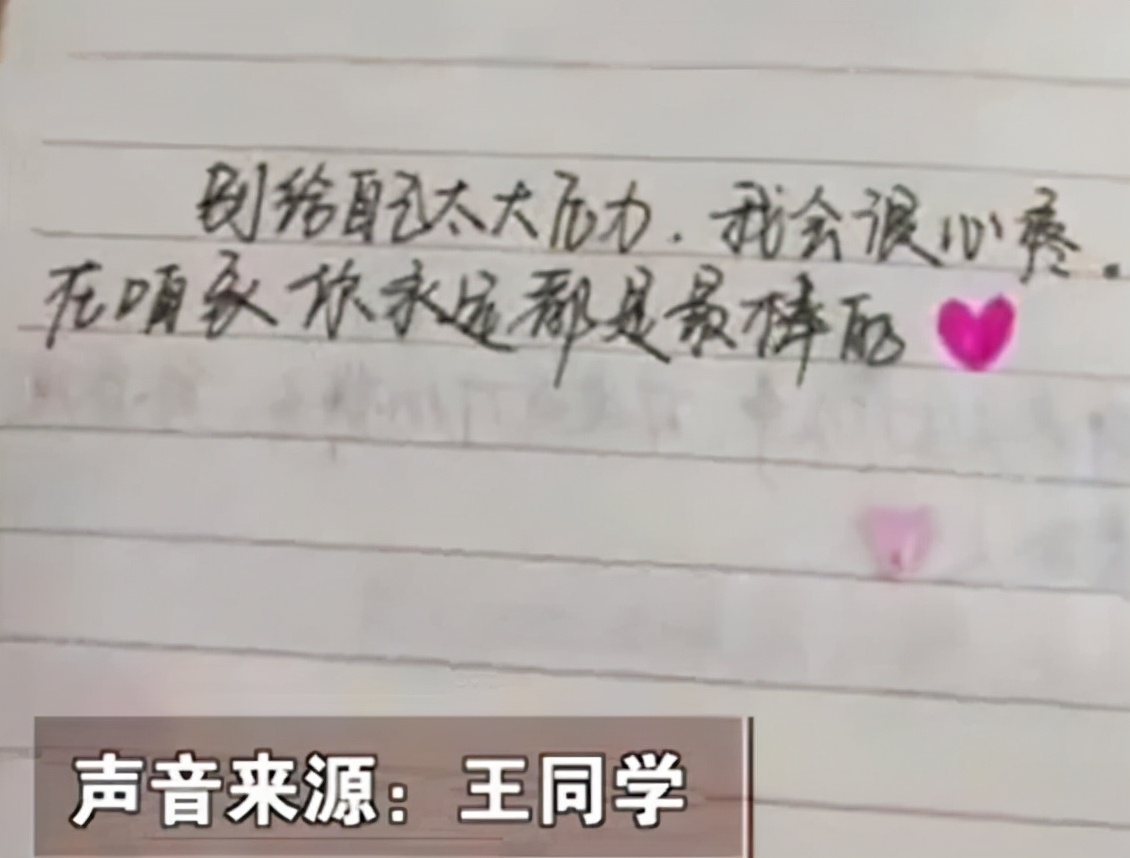 别给自己太大压力.我会很心疼.
在咱家你永远都是最棒的
声音来源：王同学